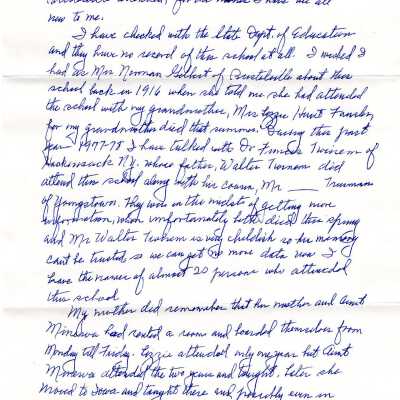 new to me.
I have checked with the State Dept. of Education
and they have no record of this school at all. I wished I
had as Mrs Norman of about this
school back in 1916 when she told me she had attended
the school with my grandmother, Mrs Lizzie Hunt
for my grandmother died that summer. During this past
year 1977-78 I have talked with Dr Francis of
N.Y. whose father, Walter did
attend this school along with his cousin, Mr. ____ Truman
of Youngstown. They were in the midst of getting more
information, when unfortunately both died this spring
and Mr Walter is very childish so his memory
can't be trusted so we can get no more data now I
have the names of almost 20 persons who attended
this school
My mother did remember that her mother and Aunt
Minerva had rented a room and boarded themselves from
Monday till Friday. Lizzie attended only one year but Aunt
Minerva attended the two years and taught. Later she
moved to Iowa and taught there and possibly even in